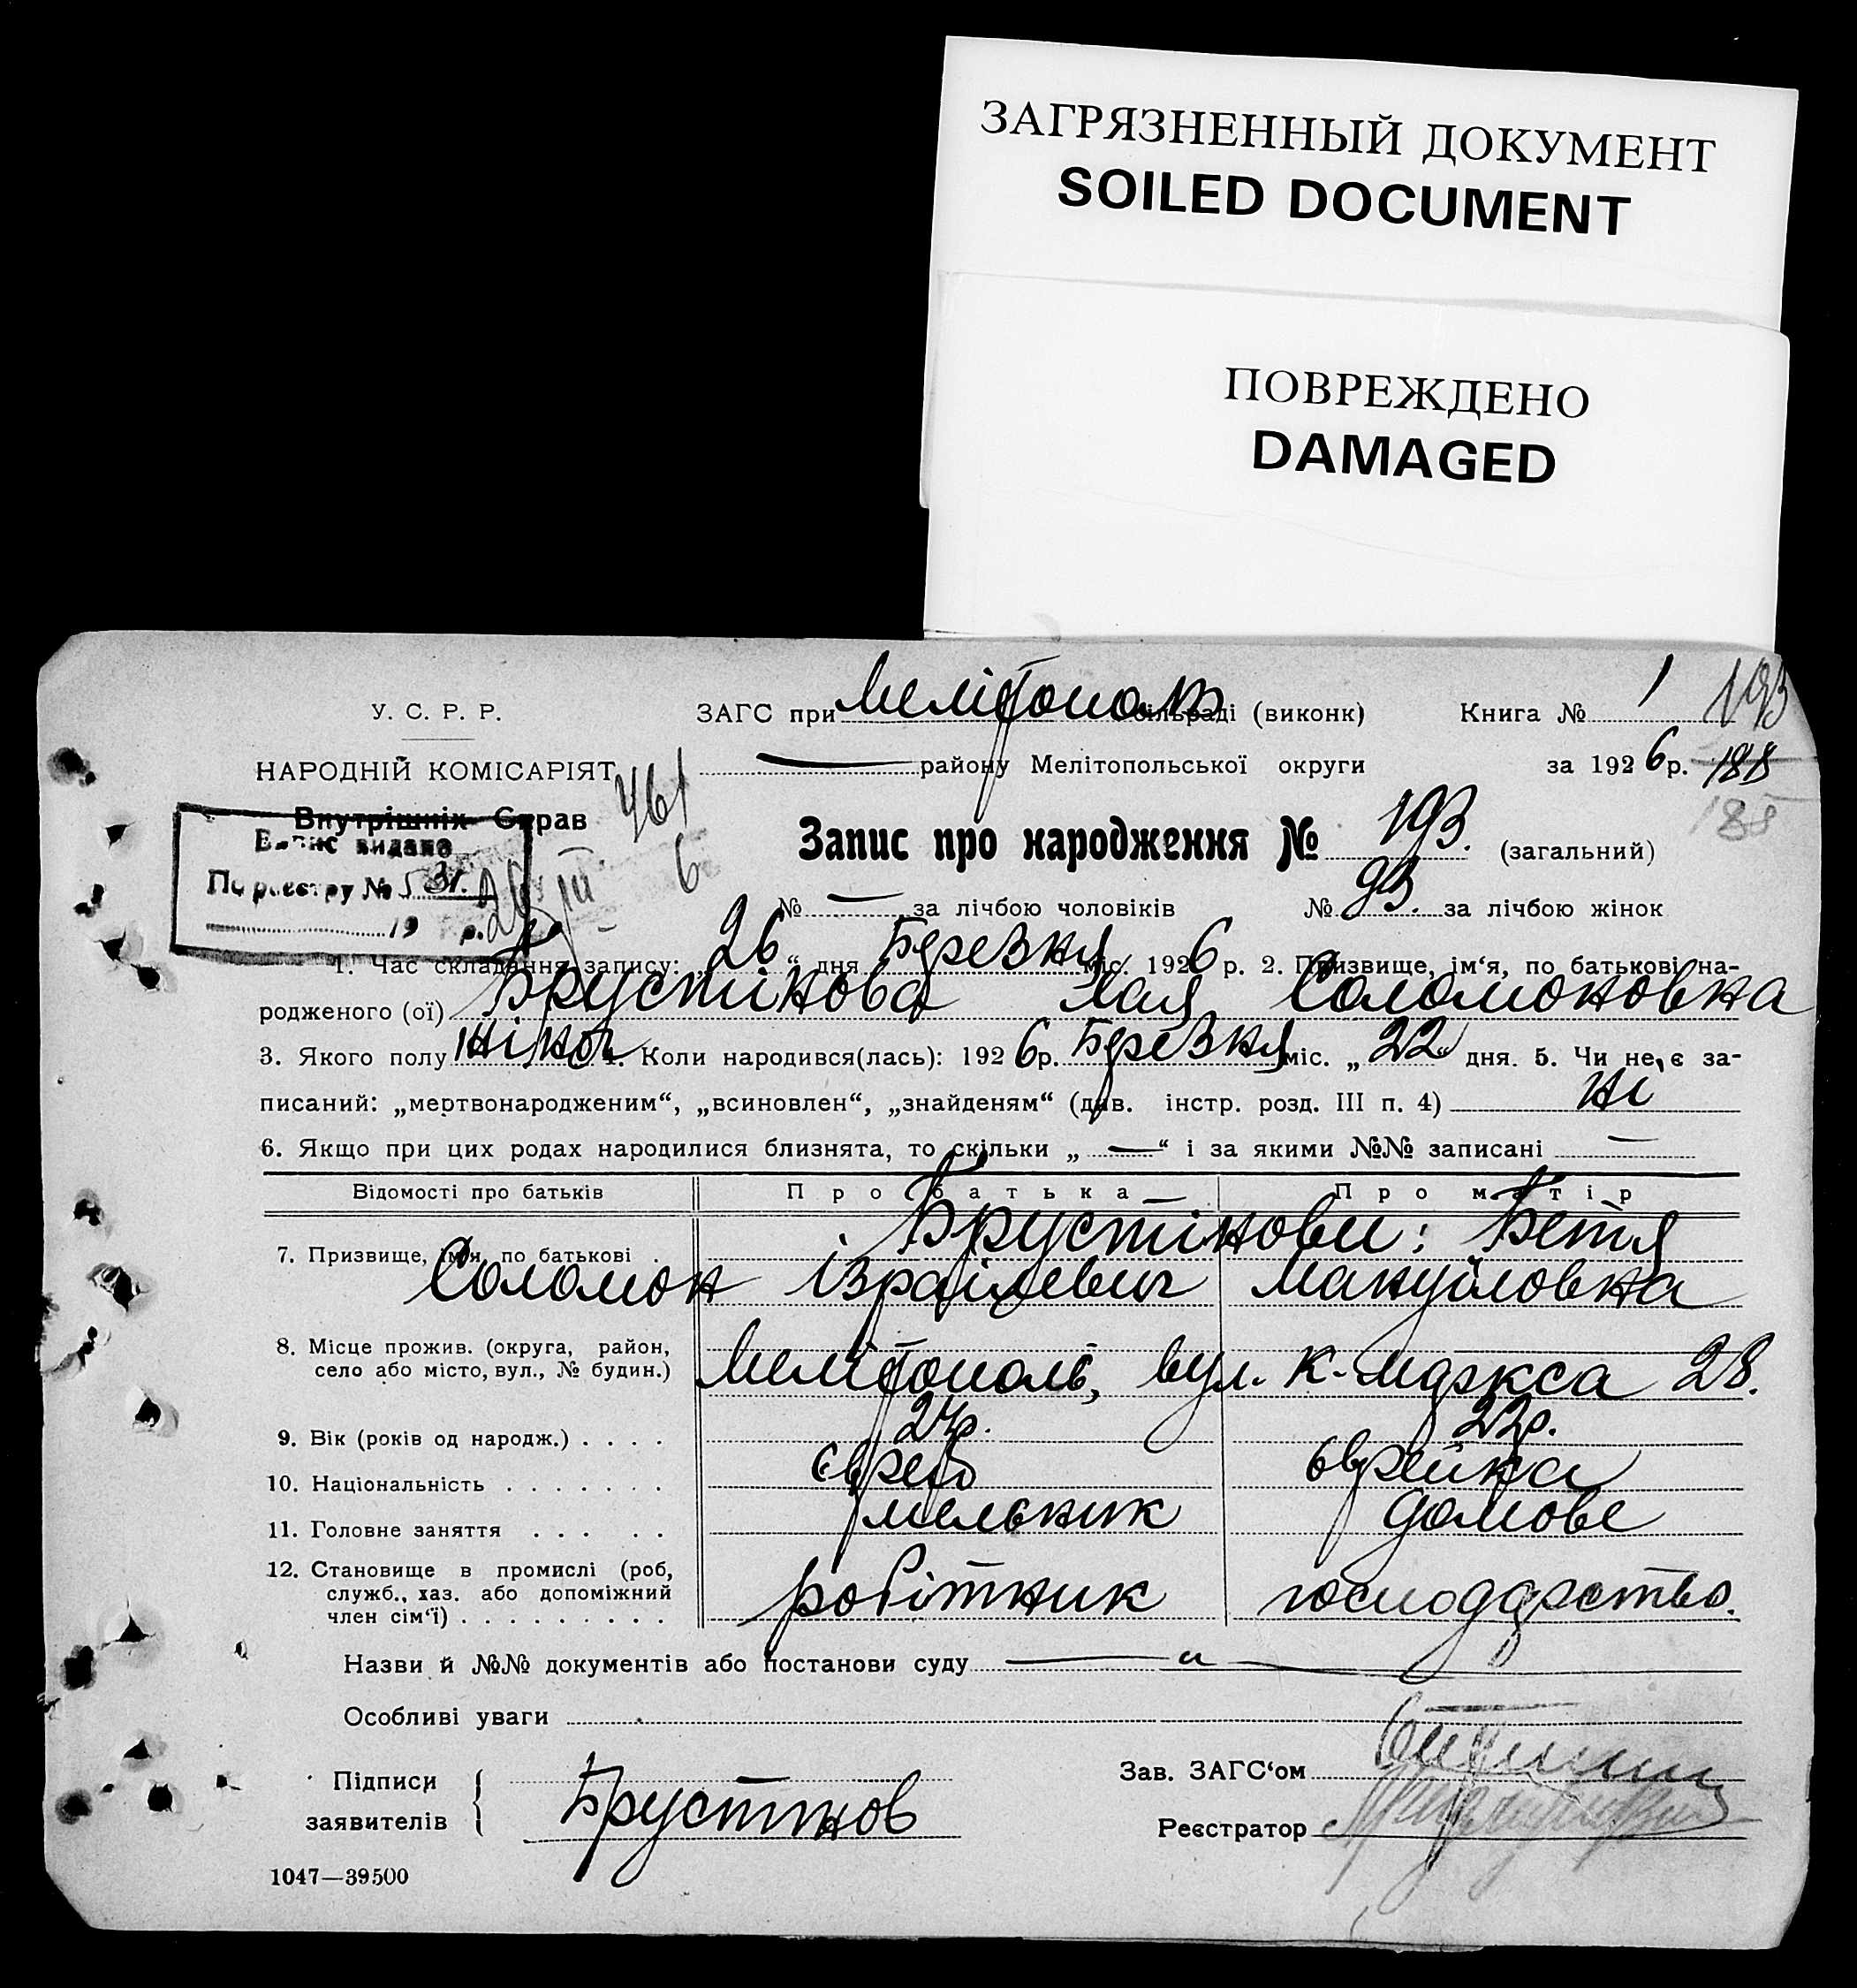 ЗАГРЯЗНЕННЫЙ ДОКУМЕНТ
SOILED DOCUMENT
ПОВРЕЖДЕНО
DAMAGED
У. С. Р. Р.
ЗАГС при Мелітопол. сільраді (виконк) Книга № 1 193
НАРОДНІЙ КОМІСАРІЯТ — району Мелітопольської округи за 1926 р. 188
Внутрішніх Справ 461 6 185
Запис про народження № 193. (загальний)
Випис видано
По реєстру № 31.
19 р.
№ — за лічбою чоловіків № 93. за лічбою жінок
1. Час складання запису: „26“ дня Березня міс. 1926 р. 2. Призвище, ім‘я, по батькові на-
родженого (ої) Брустінова Хая Соломоновна
3. Якого полу жіноч 4. Коли народився(лась): 1926 р. Березня міс. „22“ дня. 5. Чи не є за-
писаний: „мертвонародженим“, „всиновлен“, „знайденям“ (див. інстр. розд. III п. 4) ні
6. Якщо при цих родах народилися близнята, то скільки „—“ і за якими №№ записані —
Відомості про батьків Про батька Про матір
7. Призвище, ім‘я, по батькові . Брустінови: Бетя
Соломон Ізраїлевич Мануіловна
8. Місце прожив. (округа, район,
село або місто, вул., № будин.) Мелітополь, вул. К-Маркса 28.
9. Вік (років од народж.) . . . . 27р. 22р.
10. Національність . . . . . . . єврей єврейка
11. Головне заняття . . . . . мельник домове
12. Становище в промислі (роб,
служб., хаз. або допоміжний
член сім‘ї) . . . . . . . . . робітник господарство.
Назви й №№ документів або постанови суду — „ —
Особливі уваги
Підписи
заявителів Брустинов
Зав. ЗАГС‘ом
Реєстратор
1047—39500